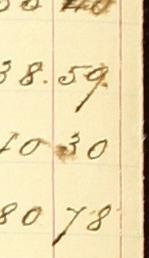 38.59
10 30
80 78